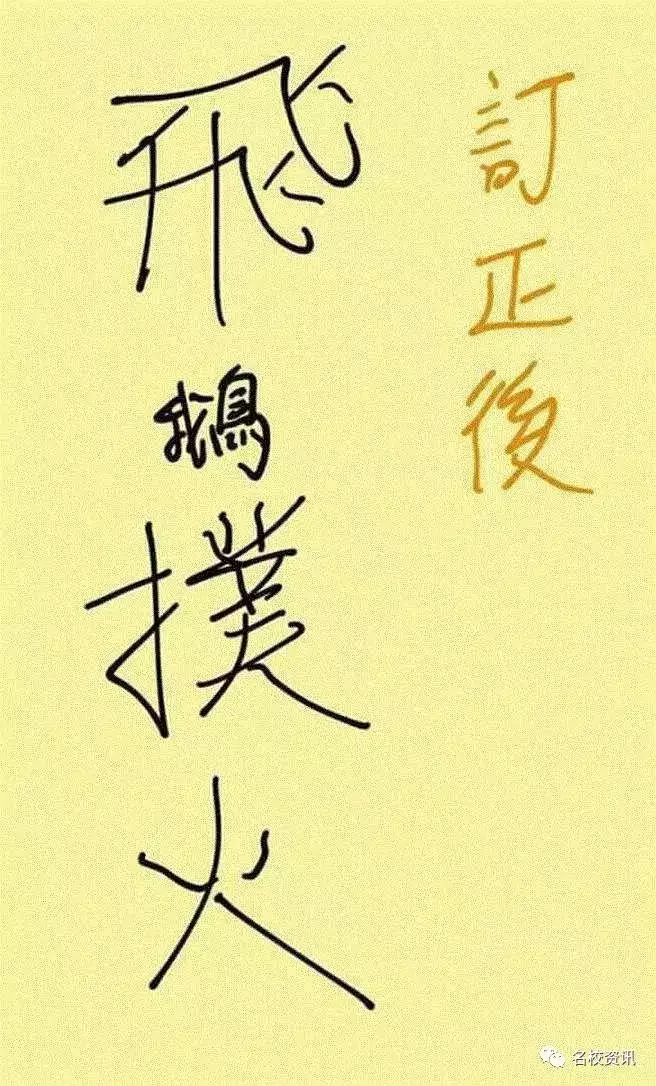 訂正後
飛鵝撲火
名校资讯